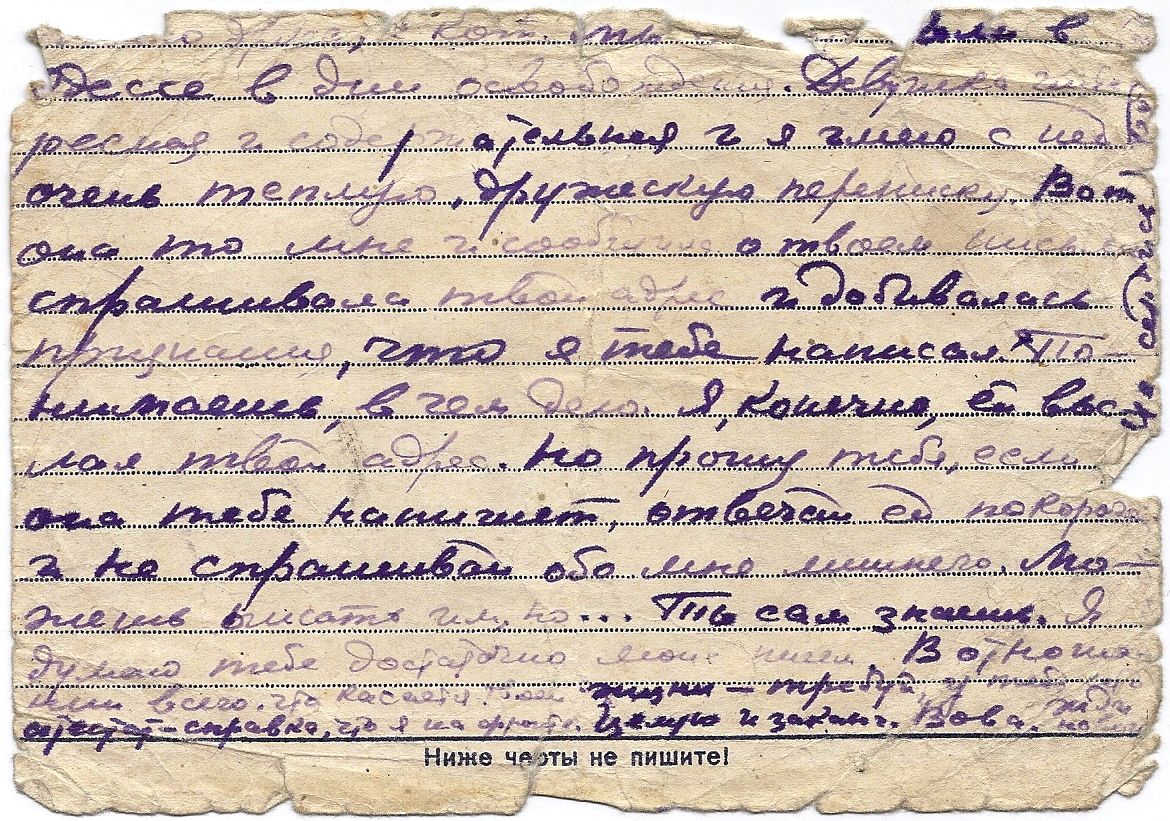 кот. мы были в
Одессе в дни освобождения. Девушка инте
ресная и содержательная и я имею с ней
очень теплую, дружескую переписку. Вот
она то мне и сообщила о твоем письме
спрашивала твой адрес и добивалась
признания, что я тебе написал. По-
нимаешь, в чем дело. Я, конечно, ей выс
лал твой адрес. Но прошу тебя, если
она тебе напишет, отвечай ей покороче
и не спрашивай обо мне лишнего. Мо-
жешь писать им, но... Ты сам знаешь. Я
думаю тебе достаточно моих писем. В отноше
нии всего, что касается твоей жизни – требуй, у тебя
аттестат – справка, что я на фронте. Целую и заканч. Вова.
Ниже черты не пишите!